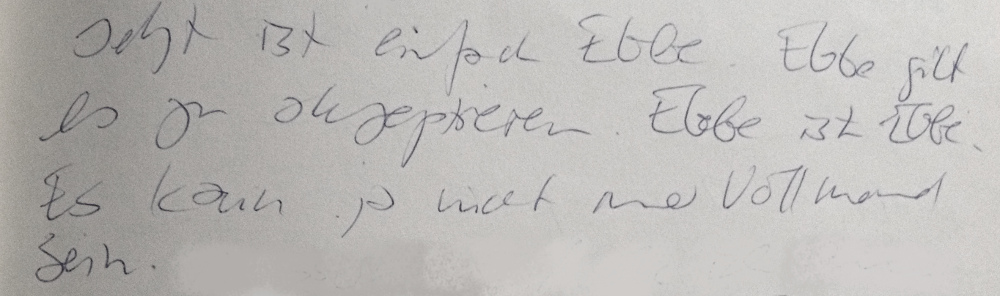 Jetzt ist einfach Ebbe. Ebbe gilt
es zu akzeptieren. Ebbe ist Ebbe.
Es kann ja nicht immer Vollmond
sein.